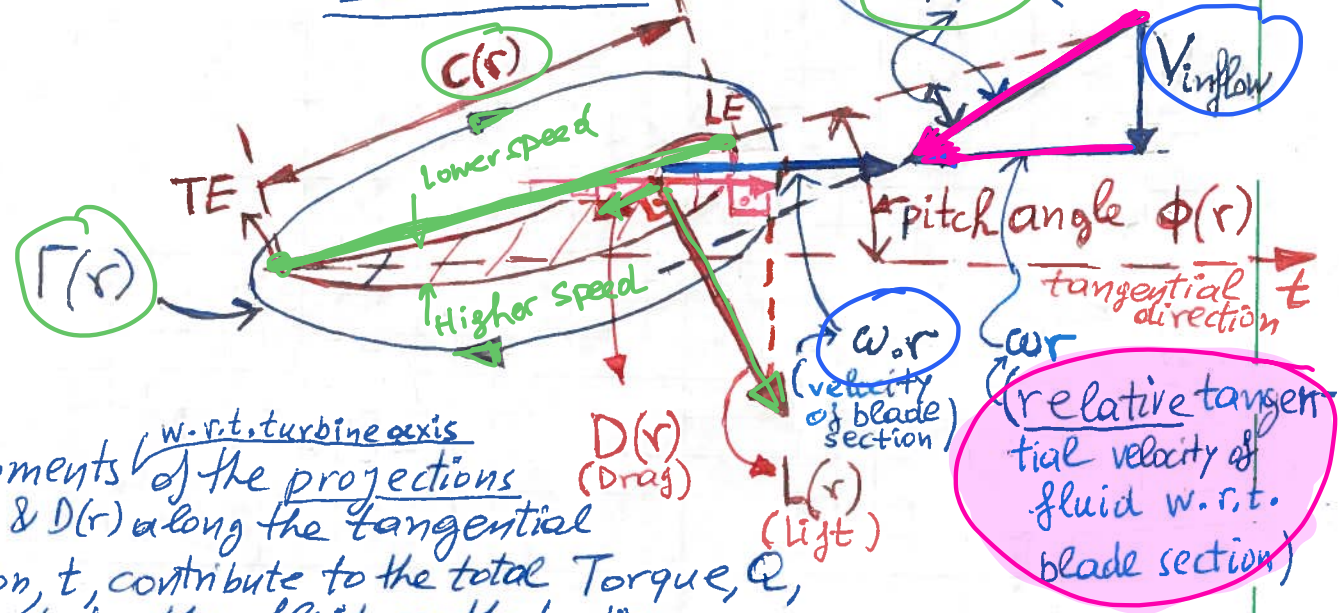 c(r)
Vinflow
LE
Lower speed
TE
pitch angle φ(r)
Γ(r)
Higher speed
tangential t
direction
ω.r
ωr
(velocity
of blade
section)
(relative tangen-
tial velocity of
fluid w.r.t.
blade section)
D(r)
(Drag)
L(r)
(Lift)
w.r.t. turbine axis
ments of the projections
& D(r) along the tangential
on, t, contribute to the total Torque, Q,